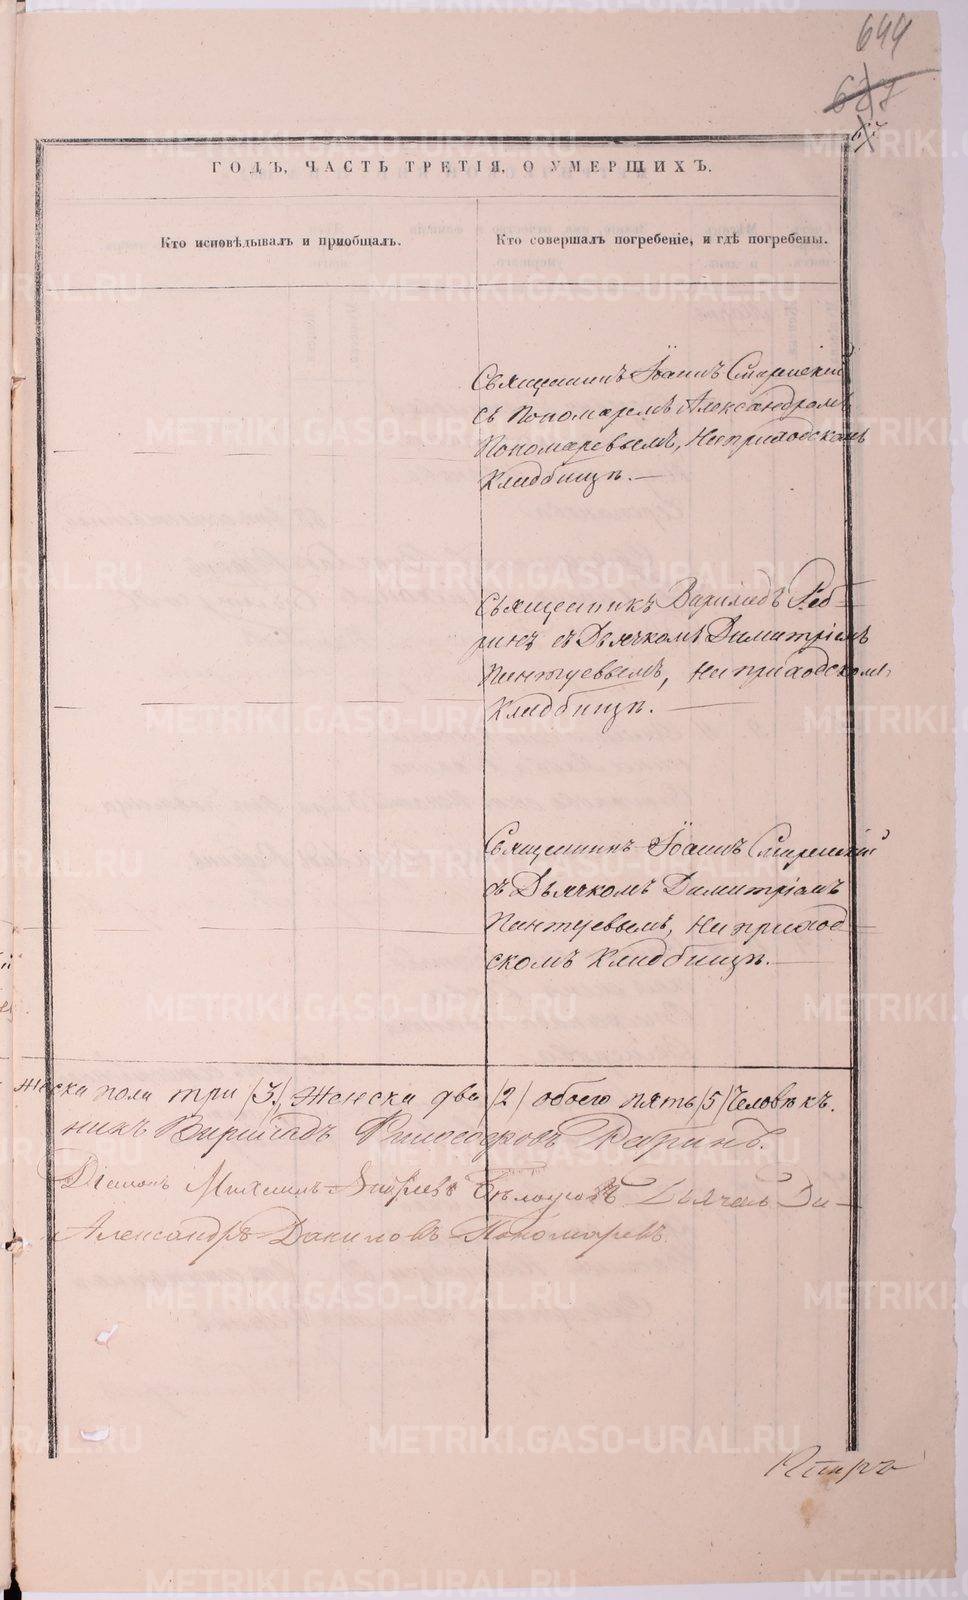 644
ГОДЪ, ЧАСТЬ ТРЕТІЯ, О УМЕРШИХЪ.
Кто исповѣдывалъ и пріобщалъ.
Кто совершалъ погребеніе, и гдѣ погребены.
Священникъ Іоаннъ Смиренскій
съ Пономаремъ Александромъ
Пономаревымъ, На приходскомъ
Кладбищѣ. —
Священникъ Варлаамъ Реб-
ринъ съ Дьячкомъ Димитріемъ
Пантуевымъ, На приходскомъ
Кладбищѣ. —
Священникъ Іоаннъ Смиренскій
съ Дьячкомъ Димитріемъ
Пантуевымъ, На приход
скомъ Кладбищѣ. —
жеска пола три /3/, Женска два /2/ обоего пять /5/ Человѣкъ.
никъ Ребринъ.
Діаконъ Михаилъ Андреевъ Дьячекъ Ди-
Александръ Даниловъ Пономаревъ.
METRIKI.GASO-URAL.RU